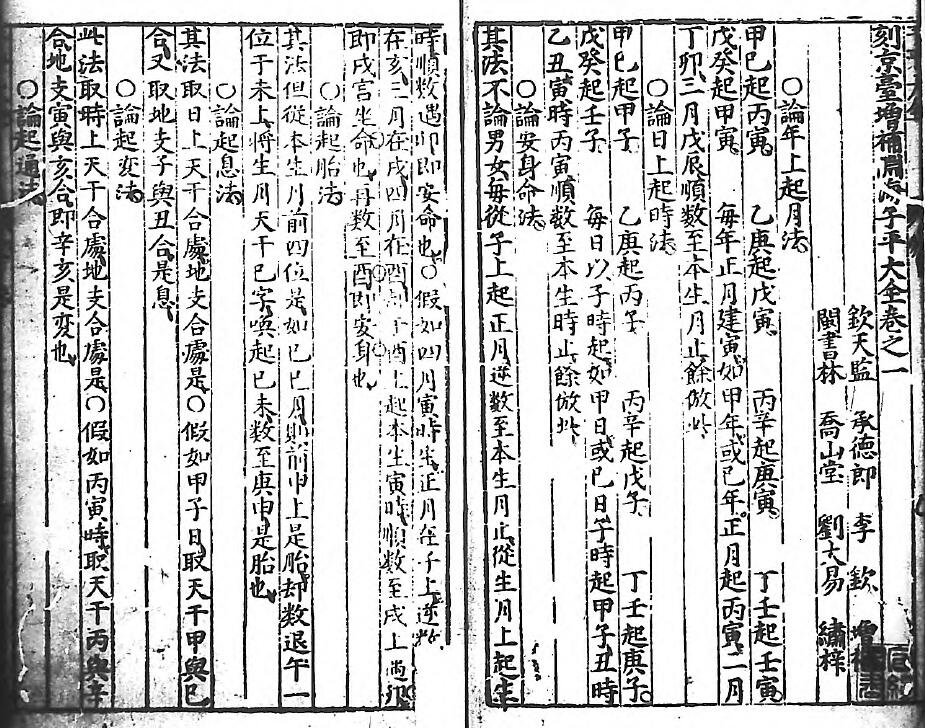 刻京臺增補淵海子平大全卷之一
欽天監　承德郎　李　欽　增補
閩書林　喬山堂　劉大易　繡梓
○論年上起月法
甲己起丙寅　乙庚起戊寅　丙辛起庚寅　丁壬起壬寅
戊癸起甲寅　每年正月建寅如甲年或己年正月起丙寅二月
丁卯三月戊辰順數至本生月止餘倣此
○論日上起時法
甲己起甲子　乙庚起丙子　丙辛起戊子　丁壬起庚子
戊癸起壬子　每日以子時起如甲日或己日子時起甲子丑時
乙丑寅時丙寅順數至本生時止餘倣此
○論安身命法
其法不論男女每從子上起正月逆数至本生月止從生月上起生
時順數遇卯即安命也○假如四月寅時生正月在子上逆數
在亥三月在戌四月在酉却于酉上起本生寅時順數至戌上遇卯
即戌宮坐命也再数至酉即安身也
○論起胎法
其法但從本生月前四位是如己巳月則前申上是胎却数退午一
位于未上將生月天干己字喚起己未数至庚申是胎也
○論起息法
其法取日上天干合處地支合處是○假如甲子日取天干甲與己
合又取地支子與丑合是息
○論起变法
此法取時上天干合處地支合處是○假如丙寅時取天干丙與辛
合地支寅與亥合即辛亥是变也
○論起通法